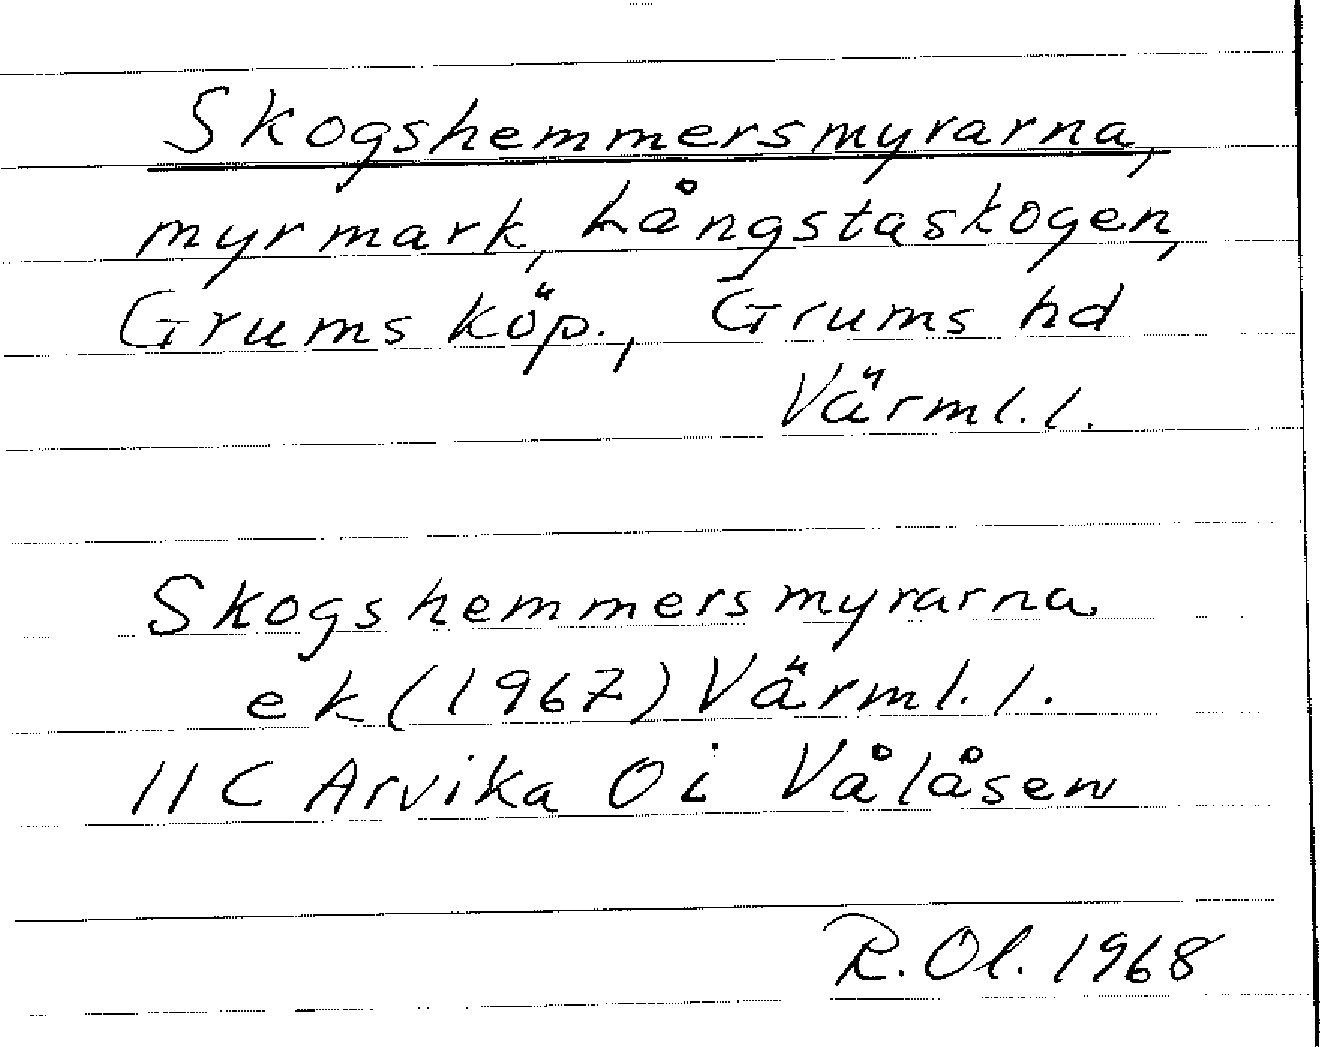 Skogshemmersmyrarna,
myrmark, Långstaskogen,
Grums köp., Grums hd
Värml.l.
Skogshemmersmyrarna
ek (1967) Värml.l.
11C Arvika Oi Vålåsen
R.Ol. 1968